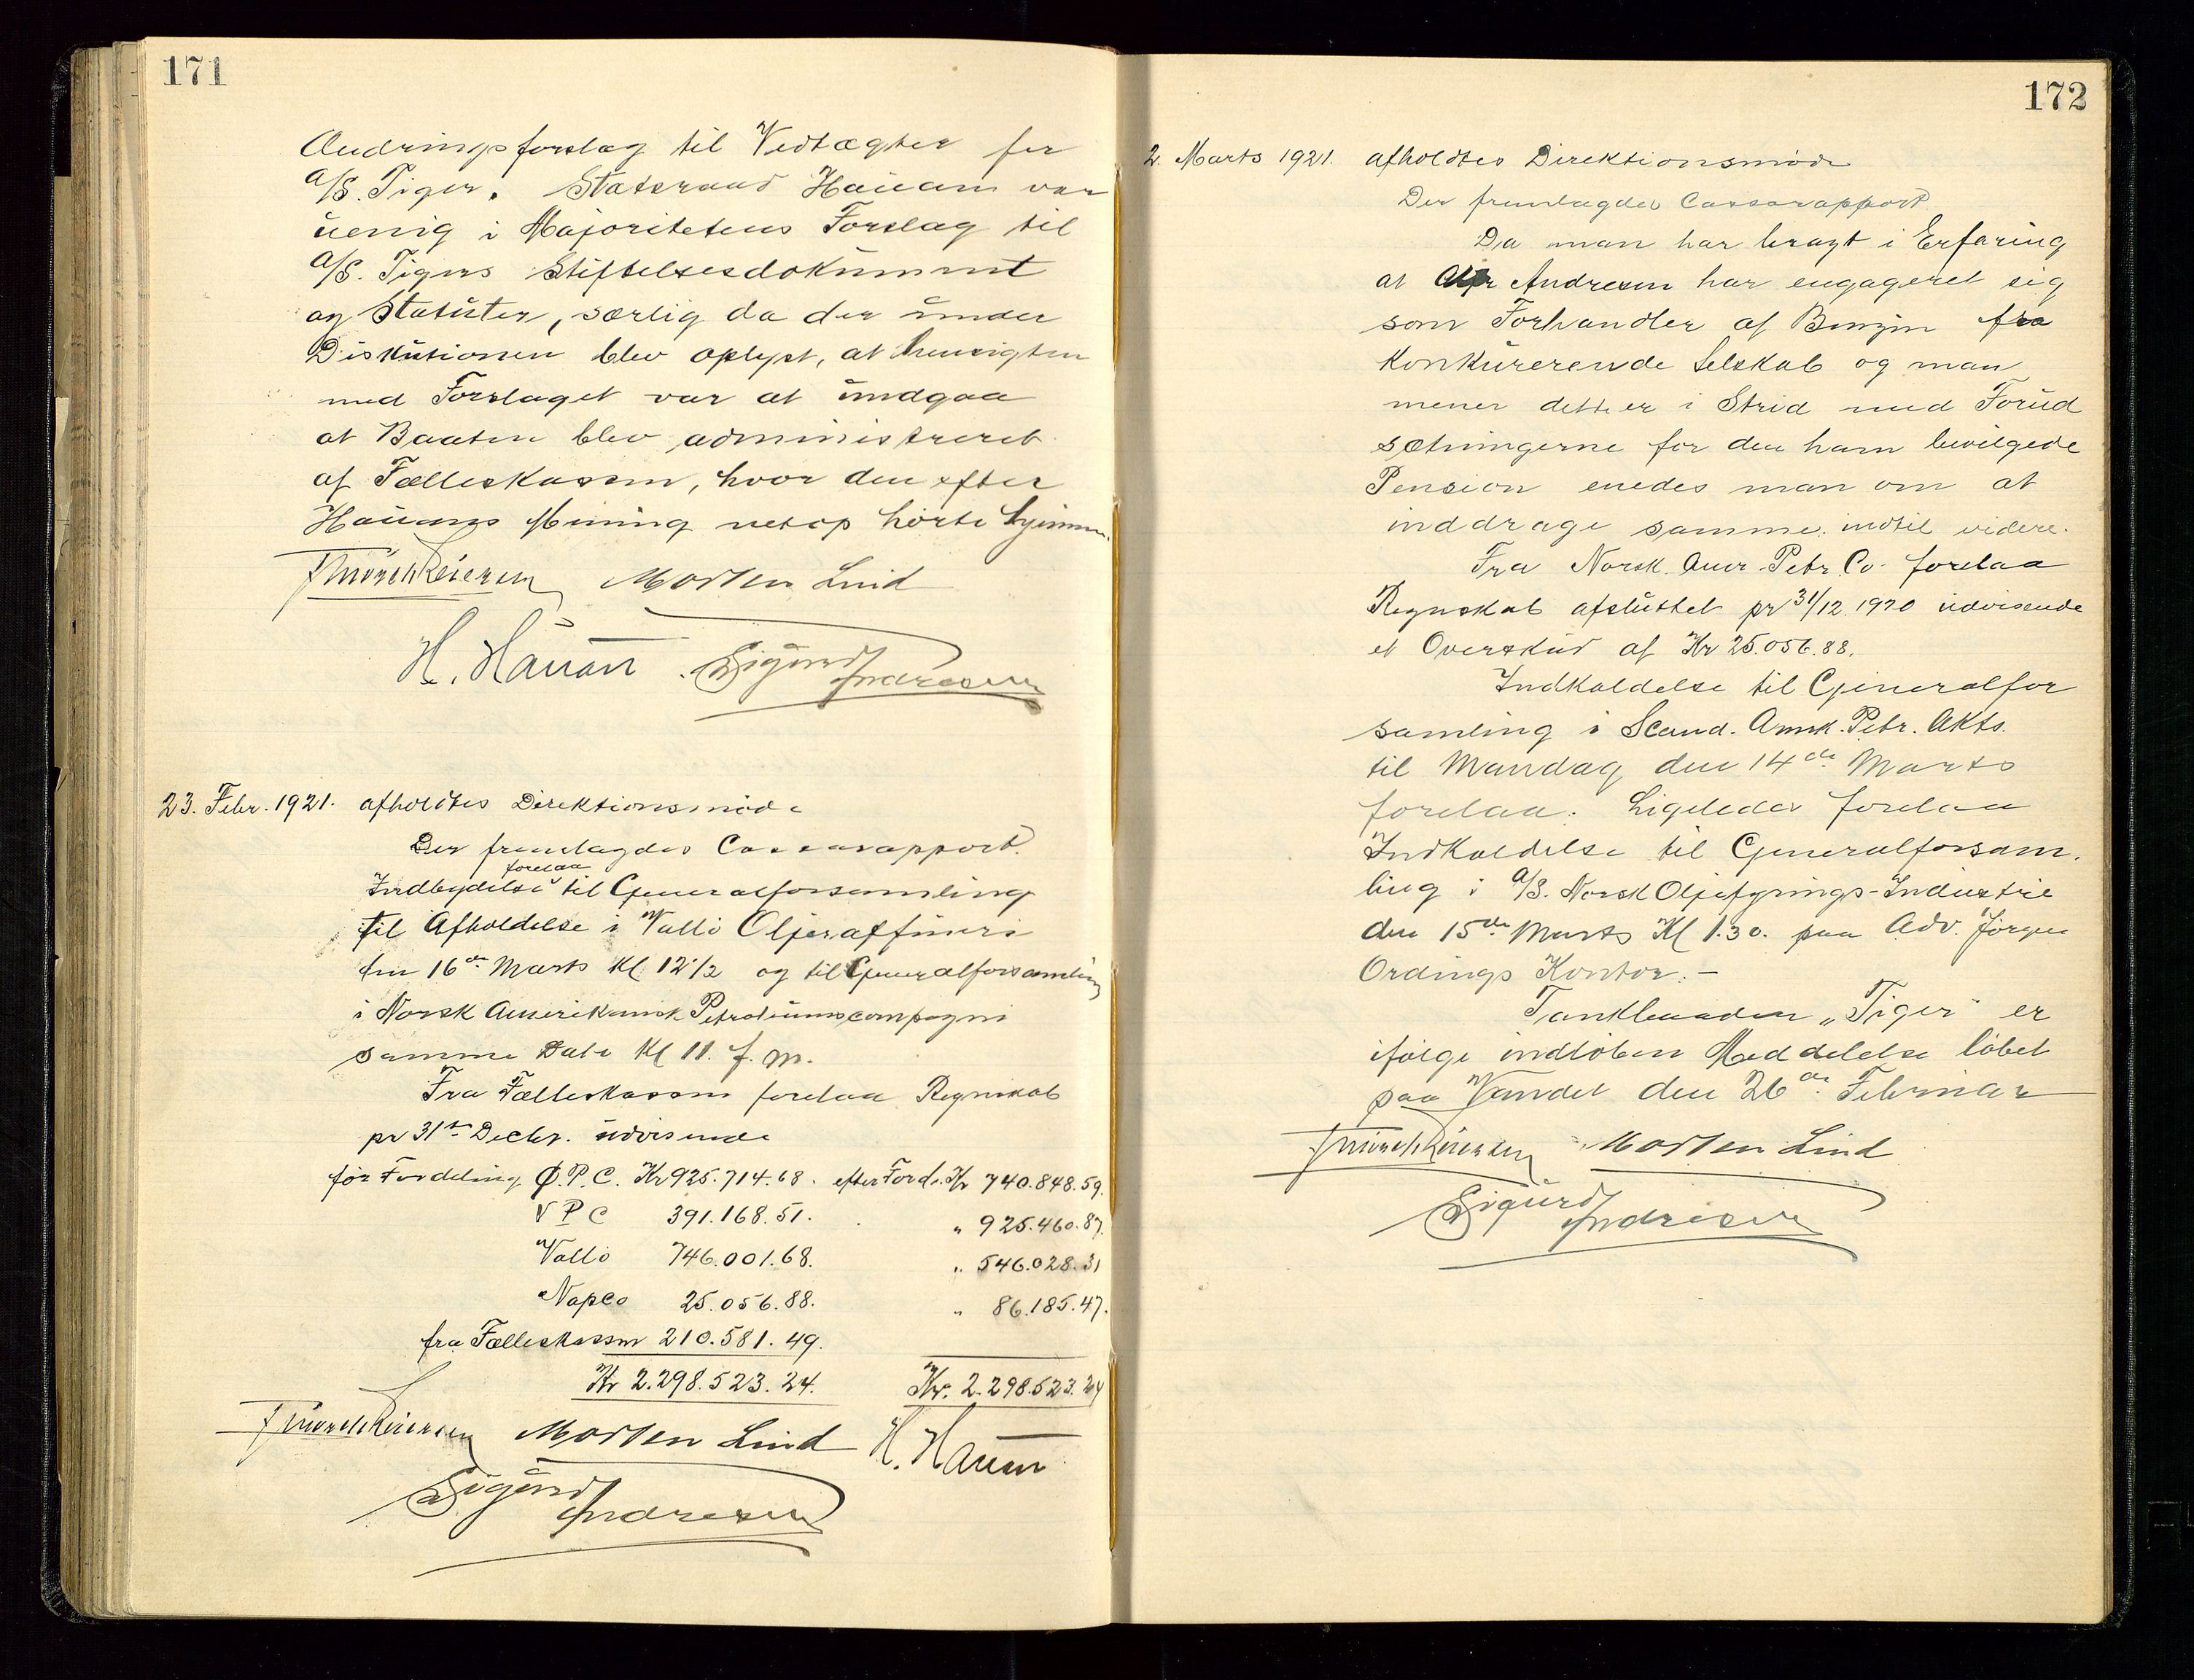 171
Ændringsforslag til Vedtægter for
A/S. Tiger. Statsraad Hauan var
uenig i Majoritetens Forslag til
A/S. Tigers Stiftelsesdokument
og Statuter, særlig da der under
Diskutionen blev oplyst, at hensigten
med Forslaget var at undgaa
at Baaten blev administreret
af Fælleskassen, hvor den efter
Hauans Mening netop hørte hjemme.
Mørch Reiersen Morten Lind
H. Hauan Sigurd Andresen
23. Febr. 1921. afholdtes Direktionsmøde
Der fremlagdes Cassarapport.
forelaa
Indbydelse til Generalforsamling
til Afholdelse i Vallö Oljeraffineri
den 16de Marts Kl 12 1/2 og til Generalforsamling
i Norsk Amerikansk Petroleumscompagni
samme Date Kl 11. f. m.
Fra Fælleskassen forelaa Regnskab
pr 31te Decbr. udvisende
før Fordeling Ø.P.C. Kr 925.714.68. efter Ford. Kr 740.848.59.
V P C 391.168.51. " 925.460.87.
Vallö 746.001.68. " 546.028.31
Napco 25.056.88. " 86.185.47.
fra Fælleskassen 210.581.49.
Kr 2.298.523.24. Kr. 2.298.523.24
Mørch Reiersen Morten Lind H. Hauan
Sigurd Andresen
172
2. Marts 1921. afholdtes Direktionsmøde
Der fremlagdes Cassarapport
Da man har bragt i Erfaring
at Andresen har engageret sig
som Forhandler af Benzin fra
konkurerende Selskab og man
mener dette er i Strid med Forud
sætningerne for den ham bevilgede
Pension enedes man om at
inddrage samme indtil videre.
Fra Norsk Amr. Petr. Co. forelaa
Regnskab afsluttet pr 31/12 1920 udvisende
et Overskud af Kr 25.056.88.
Indkaldelse til Generalfor
samling i Scand. Amrk. Petr. Akts.
til Mandag den 14de Marts
forelaa. Ligeledes forelaa
Indkaldelse til Generalforsam.
ling i A/S. Norsk Oljefyrings-Industrie
den 15de Marts Kl 1.30. paa Adv. Jørgen
Ordings Kontor. -
Tankbaaden „Tiger" er
ifølge indløben Meddelelse løbet
paa Vandet den 26de Februar
Mørch Reiersen Morten Lind
Sigurd Andresen